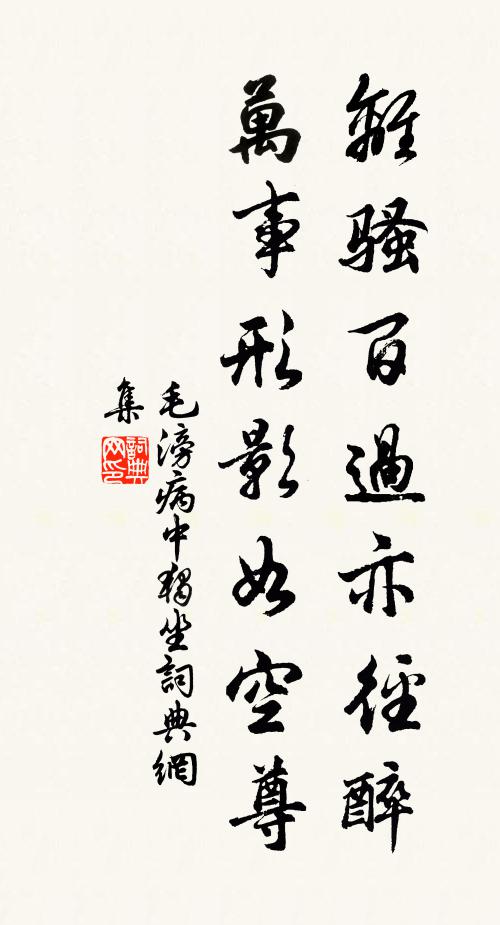 離騷百過亦徑醉
萬事形影如空尊
毛滂病中獨坐詞典網
集
詞典網印